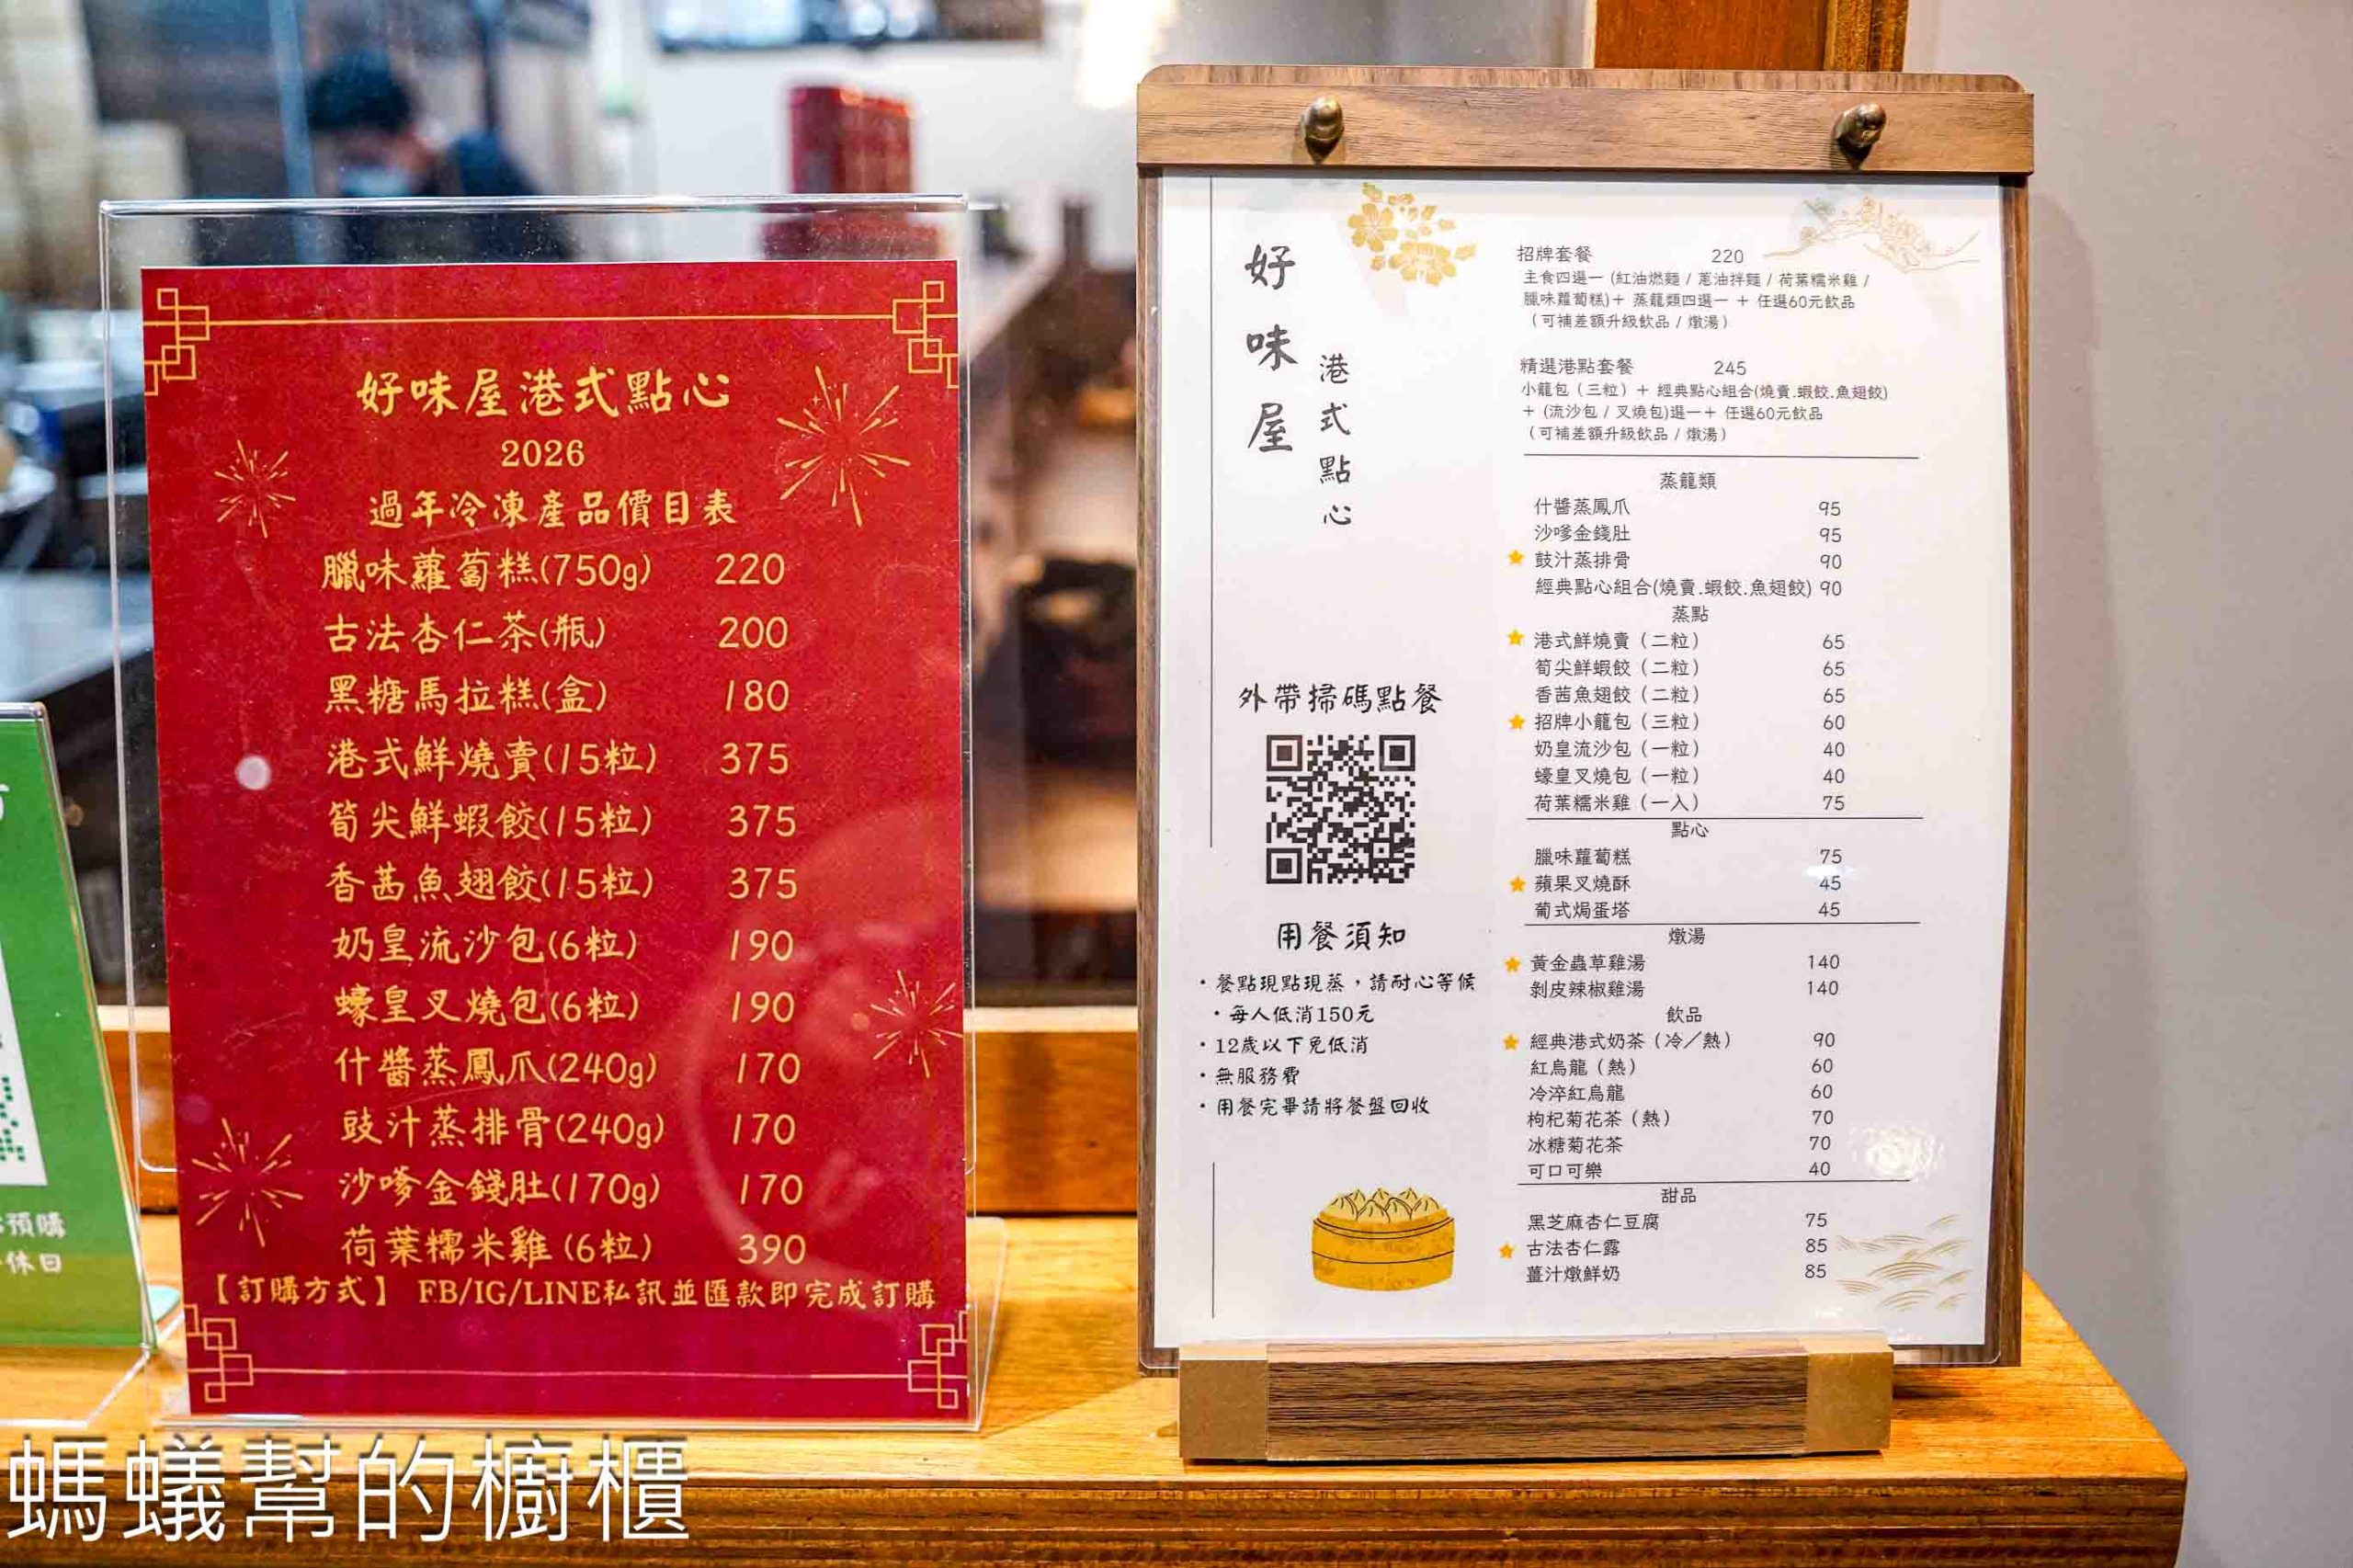 好味屋港式點心
2026
過年冷凍產品價目表
臘味蘿蔔糕(750g) 220
古法杏仁茶(瓶) 200
黑糖馬拉糕(盒) 180
港式鮮燒賣(15粒) 375
筍尖鮮蝦餃(15粒) 375
香茜魚翅餃(15粒) 375
奶皇流沙包(6粒) 190
蠔皇叉燒包(6粒) 190
什醬蒸鳳爪(240g) 170
豉汁蒸排骨(240g) 170
沙嗲金錢肚(170g) 170
荷葉糯米雞(6粒) 390
【訂購方式】 FB/IG/LINE私訊並匯款即完成訂購
預購
休日
好味屋
港式點心
外帶掃碼點餐
用餐須知
・餐點現點現蒸，請耐心等候
・每人低消150元
・12歲以下免低消
・無服務費
・用餐完畢請將餐盤回收
招牌套餐 220
主食四選一 (紅油燃麵 / 蔥油拌麵 / 荷葉糯米雞 /
臘味蘿蔔糕)＋ 蒸籠類四選一 ＋ 任選60元飲品
（可補差額升級飲品 / 燉湯）
精選港點套餐 245
小籠包（三粒）＋ 經典點心組合(燒賣.蝦餃.魚翅餃)
＋ (流沙包 / 叉燒包)選一＋ 任選60元飲品
（可補差額升級飲品 / 燉湯）
蒸籠類
什醬蒸鳳爪 95
沙嗲金錢肚 95
鼓汁蒸排骨 90
經典點心組合(燒賣.蝦餃.魚翅餃) 90
蒸點
港式鮮燒賣（二粒） 65
筍尖鮮蝦餃（二粒） 65
香茜魚翅餃（二粒） 65
招牌小籠包（三粒） 60
奶皇流沙包（一粒） 40
蠔皇叉燒包（一粒） 40
荷葉糯米雞（一入） 75
點心
臘味蘿蔔糕 75
蘋果叉燒酥 45
葡式焗蛋塔 45
燉湯
黃金蟲草雞湯 140
剝皮辣椒雞湯 140
飲品
經典港式奶茶（冷／熱） 90
紅烏龍（熱） 60
冷淬紅烏龍 60
枸杞菊花茶（熱） 70
冰糖菊花茶 70
可口可樂 40
甜品
黑芝麻杏仁豆腐 75
古法杏仁露 85
薑汁燉鮮奶 85
螞蟻幫的櫥櫃